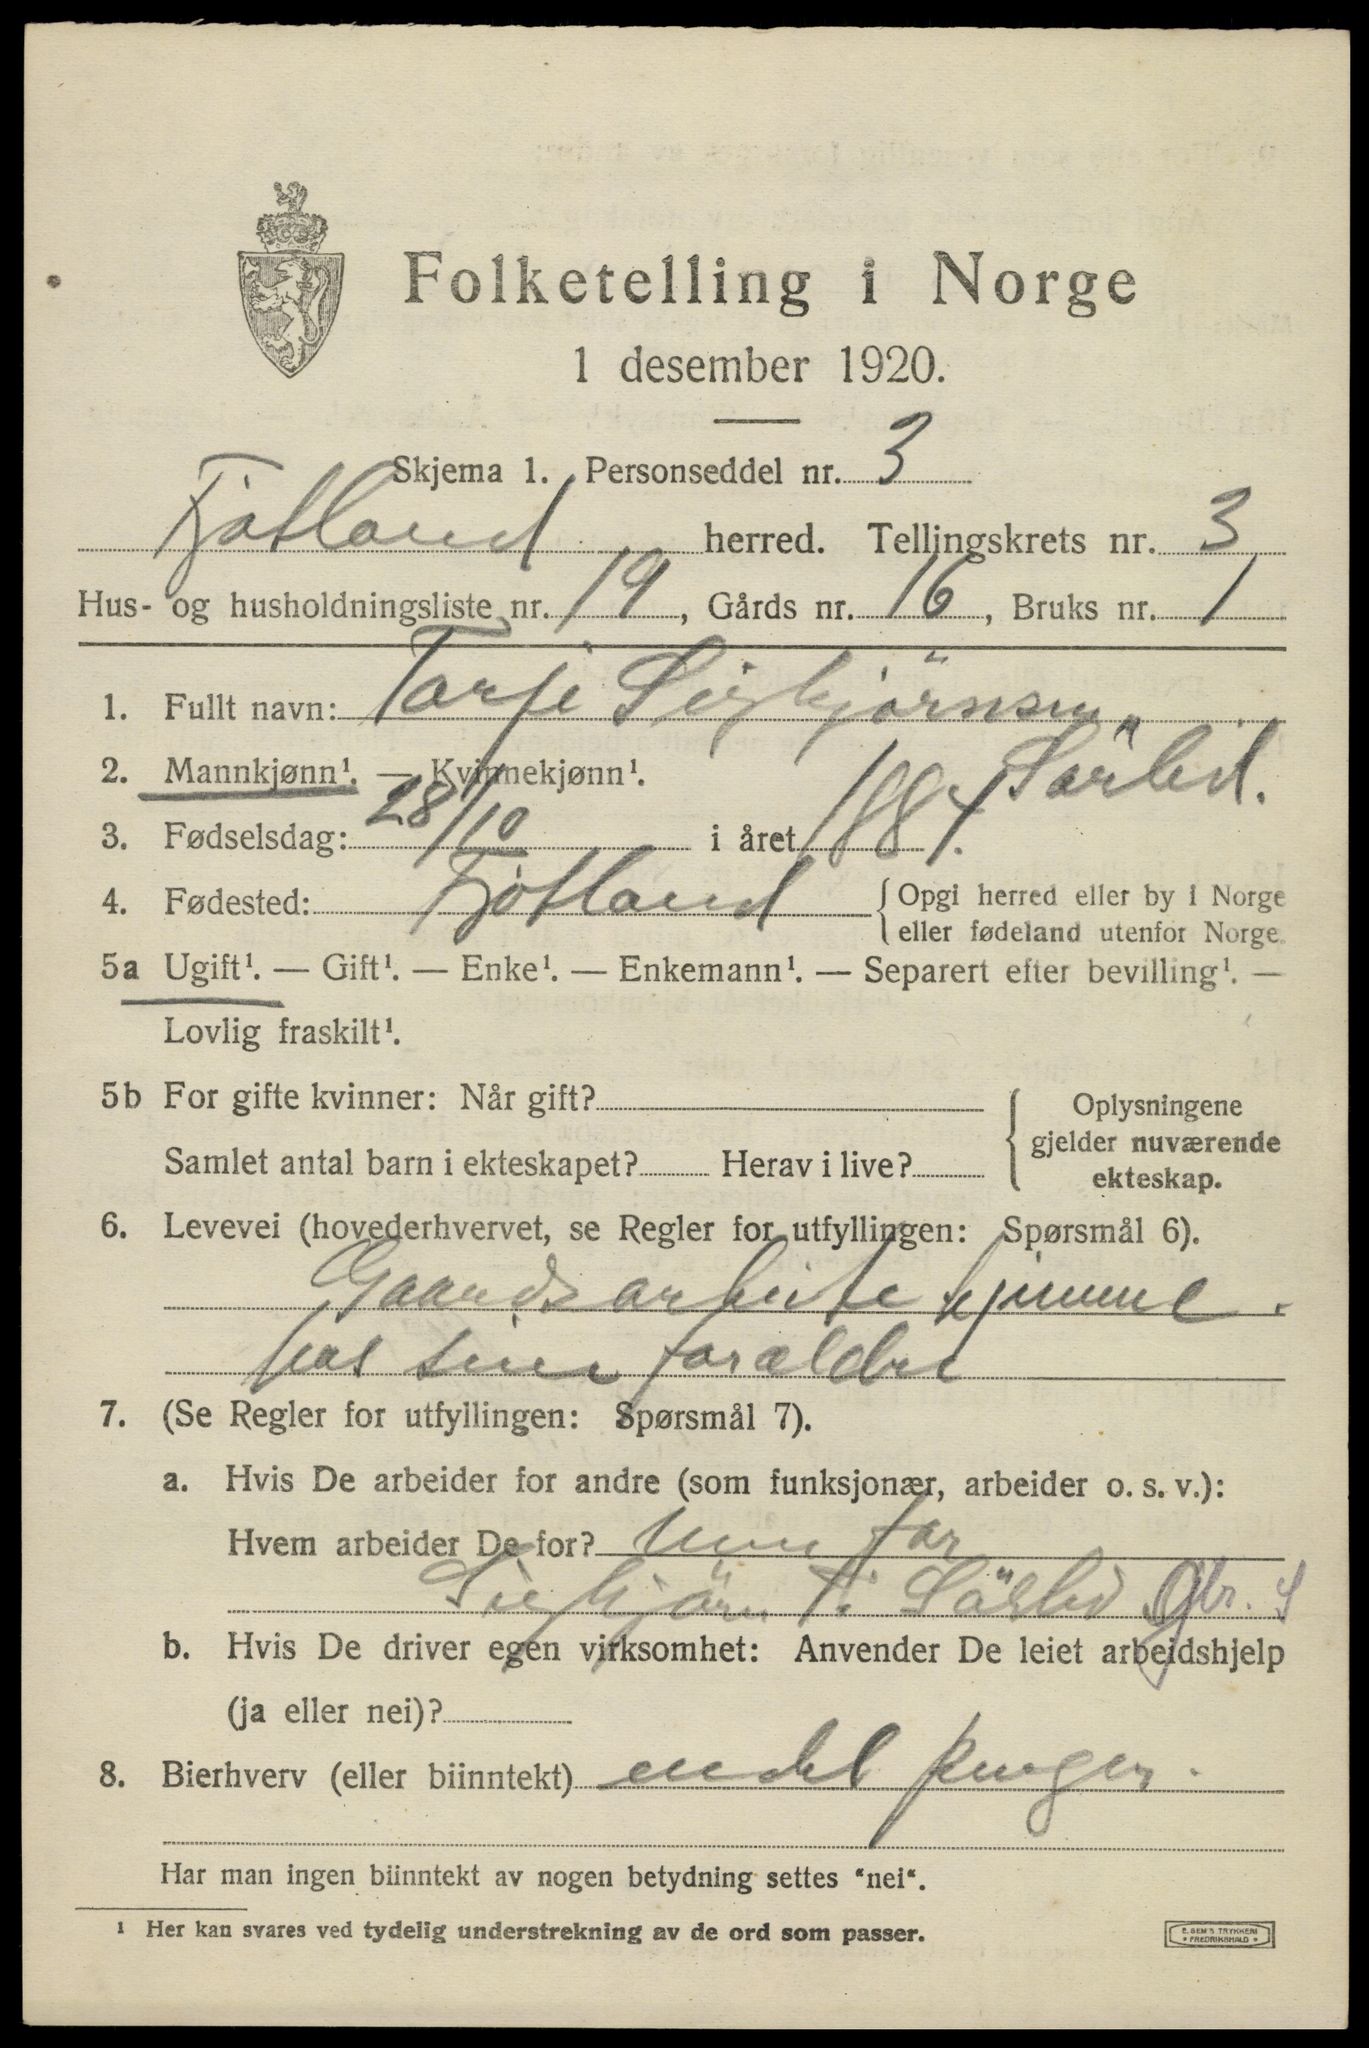 Folketelling i Norge
1 desember 1920.
Skjema 1. Personseddel nr. 3
Fjotland herred. Tellingskrets nr. 3
Hus- og husholdningsliste nr. 19, Gårds nr. 16, Bruks nr. 1
1. Fullt navn: Tarje Sigbjörnsen
Sörlid.
2. Mannkjønn¹. — Kvinnekjønn¹.
3. Fødselsdag: 28/10 i året 1884.
4. Fødested: Fjotland { Opgi herred eller by i Norge
eller fødeland utenfor Norge.
5a Ugift¹. — Gift¹. — Enke¹. — Enkemann¹. — Separert efter bevilling¹. —
Lovlig fraskilt¹.
5b For gifte kvinner: Når gift?
Samlet antal barn i ekteskapet? Herav i live?
{ Oplysningene
gjelder nuværende
ekteskap.
6. Levevei (hovederhvervet, se Regler for utfyllingen: Spørsmål 6).
Gaardsarbeide hjemme
hos sine forældre
7. (Se Regler for utfyllingen: Spørsmål 7).
a. Hvis De arbeider for andre (som funksjonær, arbeider o. s. v.):
Hvem arbeider De for? min far
Sigbjörn T. Sörlid Gbr. S
b. Hvis De driver egen virksomhet: Anvender De leiet arbeidshjelp
(ja eller nei)?
8. Bierhverv (eller biinntekt) endel penger.
Har man ingen biinntekt av nogen betydning settes "nei".
¹ Her kan svares ved tydelig understrekning av de ord som passer.
E. SEM'S TRYKKERI
FREDRIKSHALD